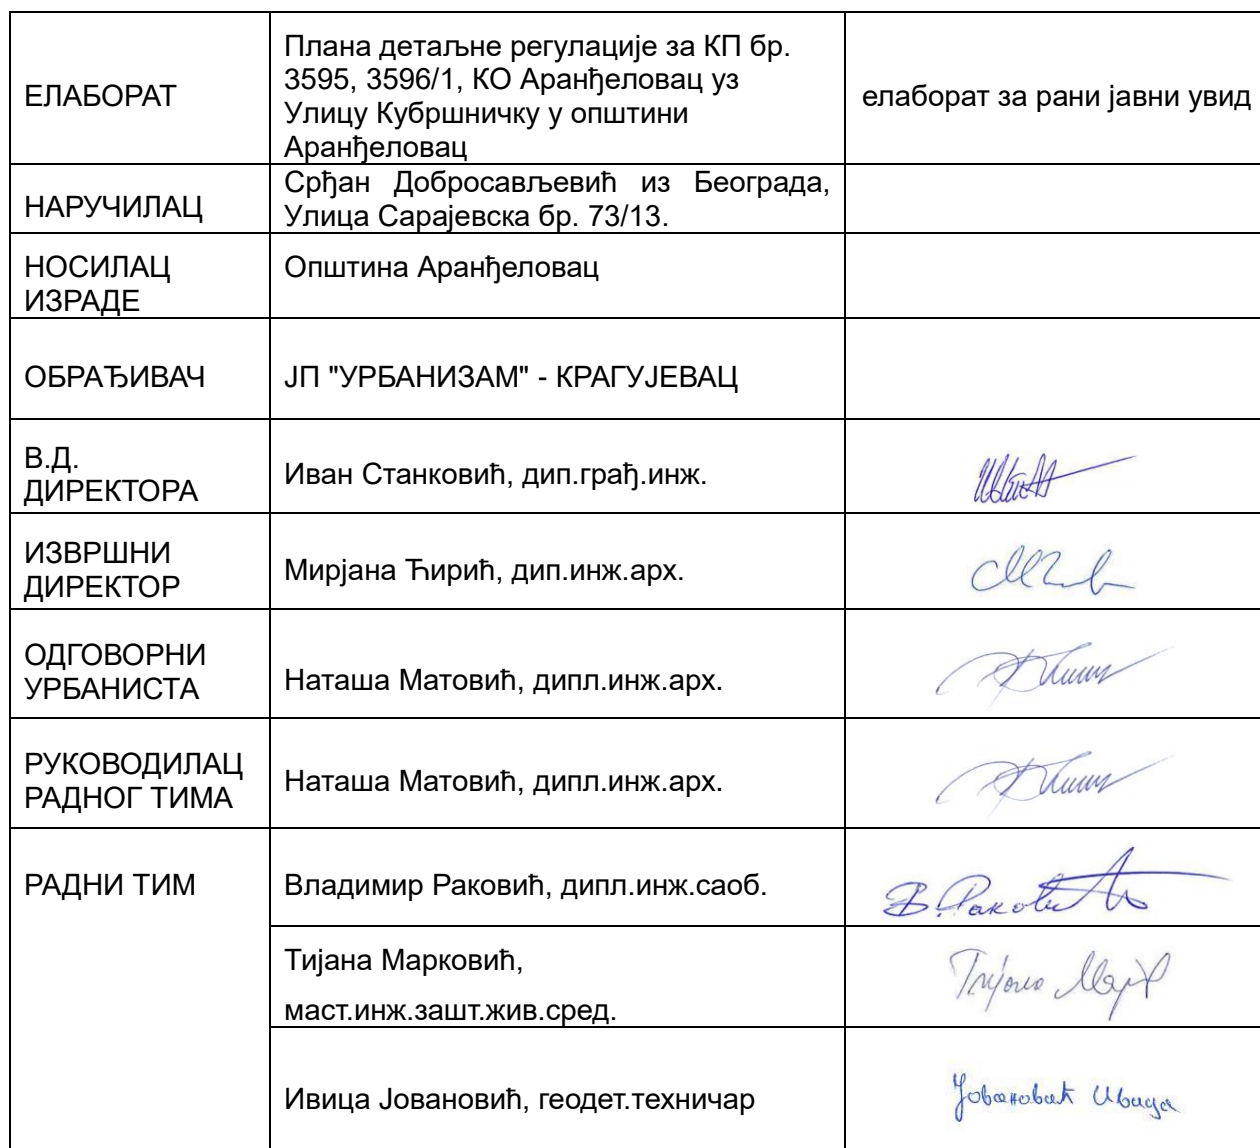 ЕЛАБОРАТ
Плана детаљне регулације за КП бр.
3595, 3596/1, КО Аранђеловац уз
Улицу Кубршничку у општини
Аранђеловац
елаборат за рани јавни увид
НАРУЧИЛАЦ
Срђан Добросављевић из Београда,
Улица Сарајевска бр. 73/13.
НОСИЛАЦ
ИЗРАДЕ
Општина Аранђеловац
ОБРАЂИВАЧ
ЈП "УРБАНИЗАМ" - КРАГУЈЕВАЦ
В.Д.
ДИРЕКТОРА
Иван Станковић, дип.грађ.инж.
ИЗВРШНИ
ДИРЕКТОР
Мирјана Ћирић, дип.инж.арх.
ОДГОВОРНИ
УРБАНИСТА
Наташа Матовић, дипл.инж.арх.
РУКОВОДИЛАЦ
РАДНОГ ТИМА
Наташа Матовић, дипл.инж.арх.
РАДНИ ТИМ
Владимир Раковић, дипл.инж.саоб.
В. Раковић
Тијана Марковић,
маст.инж.зашт.жив.сред.
Тијана
Ивица Јовановић, геодет.техничар
Јовановић Ивица